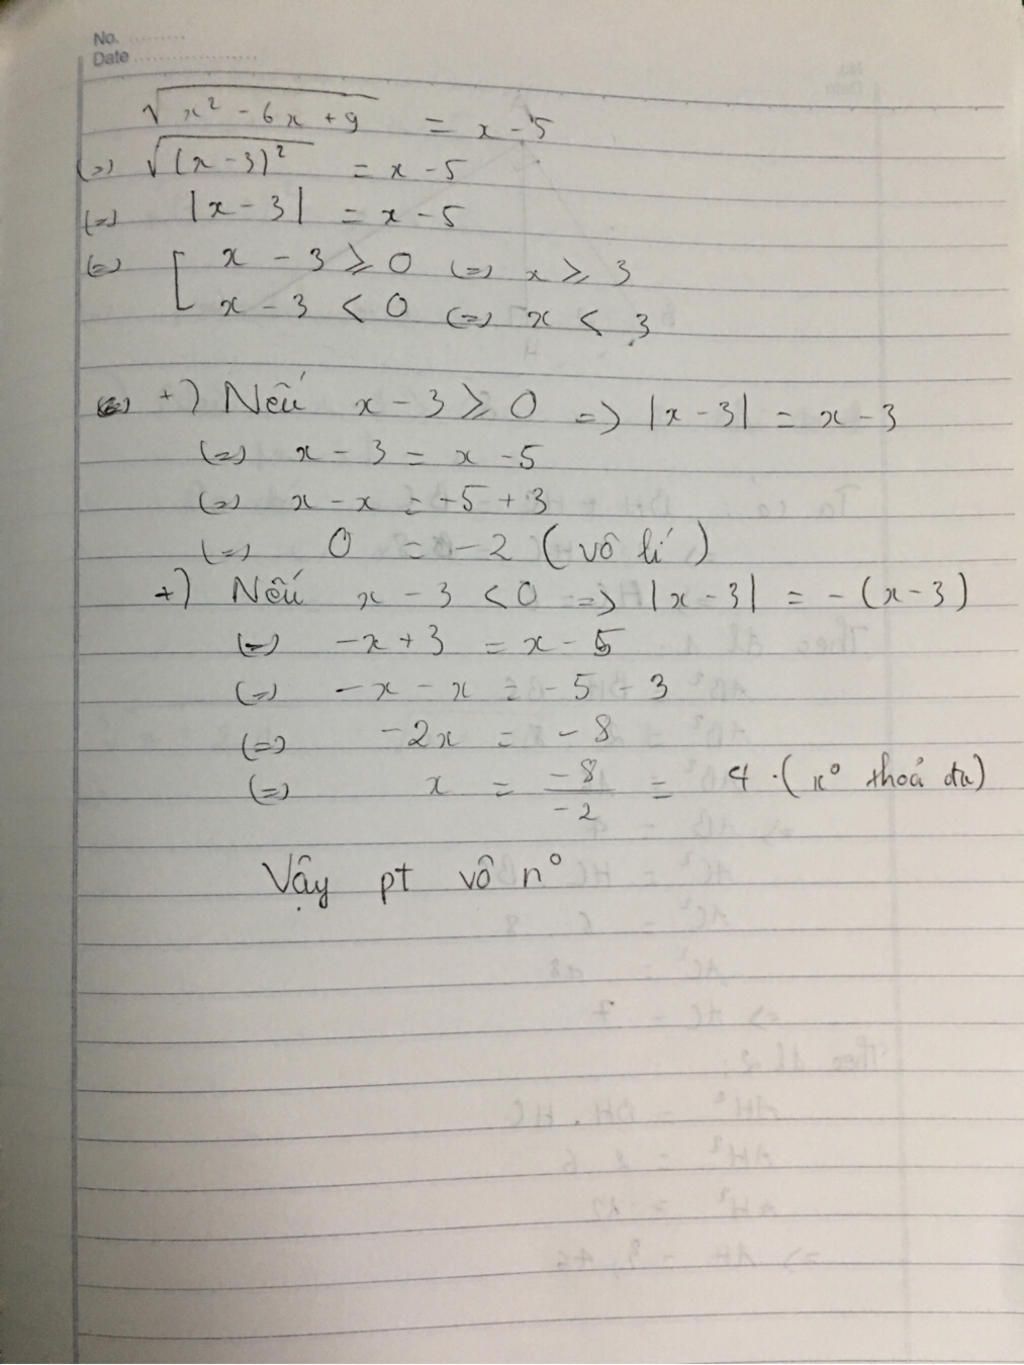 No.
Date
√(x² - 6x + 9) = x - 5
(=) √((x - 3)²) = x - 5
(=) |x - 3| = x - 5
(=) [ x - 3 ⩾ 0 (=) x ⩾ 3
x - 3 < 0 (=) x < 3
(=) +) Nếu x - 3 ⩾ 0 => |x - 3| = x - 3
(=) x - 3 = x - 5
(=) x - x = -5 + 3
(=) 0 = -2 (vô lí)
+) Nếu x - 3 < 0 => |x - 3| = -(x - 3)
(=) -x + 3 = x - 5
(=) -x - x = -5 - 3
(=) -2x = -8
(=) x = -8/-2 = 4 (k° thoả đk)
Vậy pt vô n°